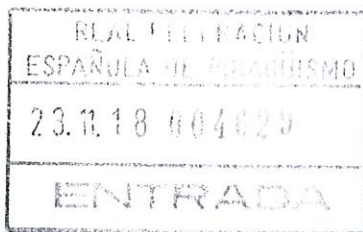 REAL FEDERACIÓN
ESPAÑOLA DE PIRAGÜISMO
23.11.18 004629
ENTRADA